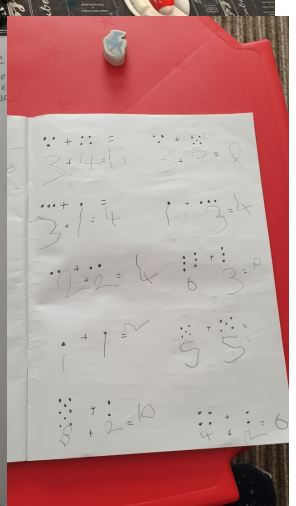 + = +
3 + 4 = 3 + 5 = 8
+ = +
3 + 1 = 4 1 + 3 = 4
+ +
2 + 2 = 4 6 3 =
+
1 1 = 2
+
5 5 =
+ +
8 + 2 = 10 4 + 2 = 6